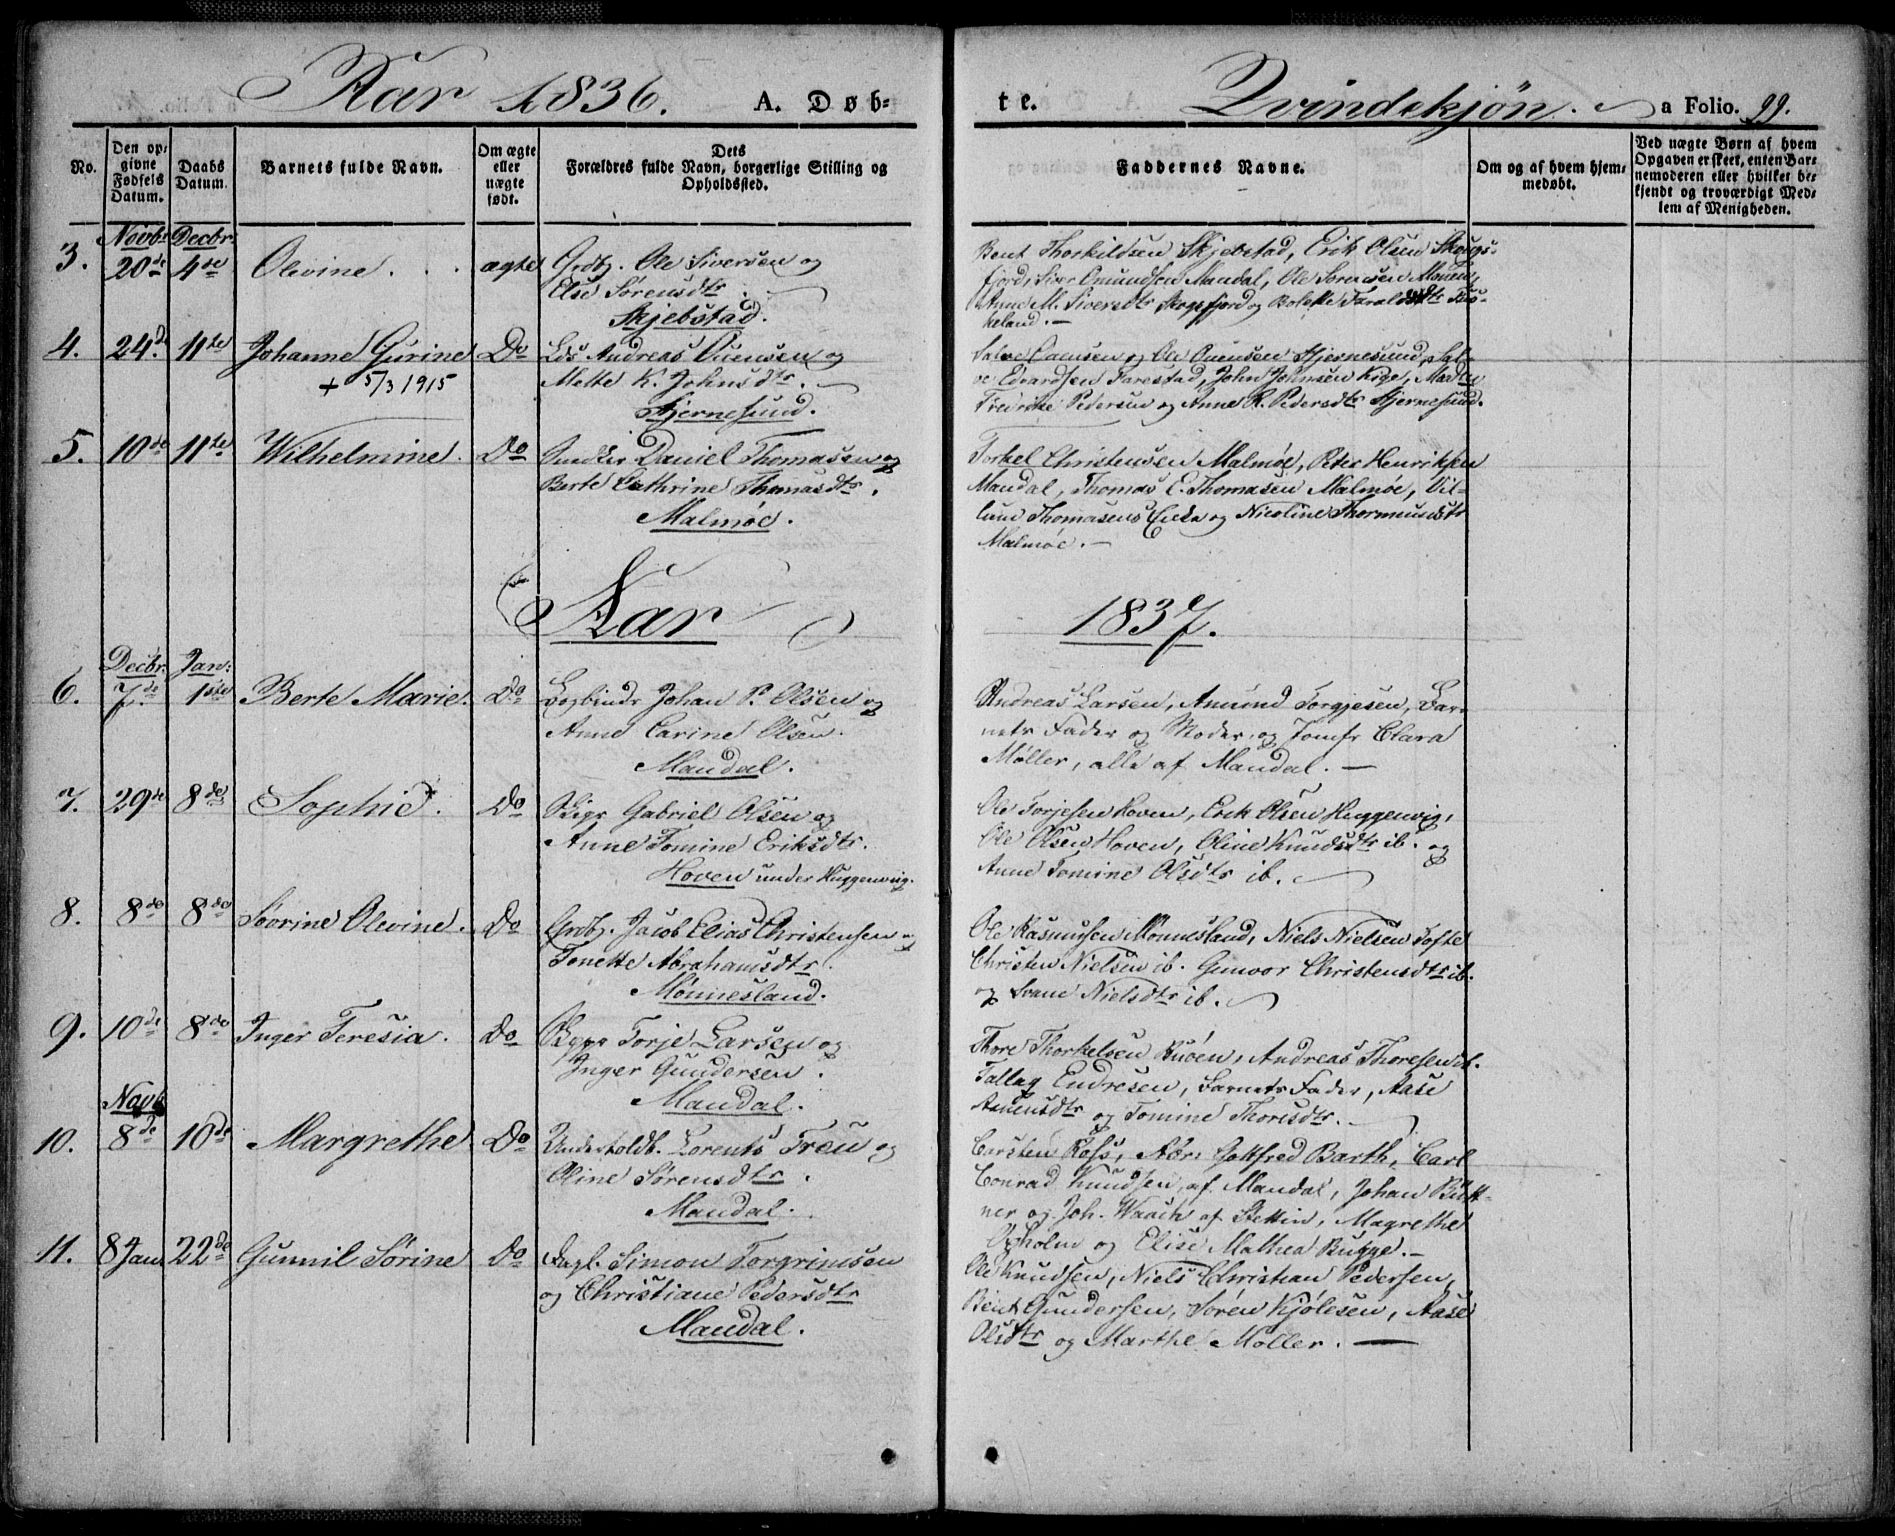 Aar 1836. A. Døb-
te. Qvindekjøn. a Folio. 99.
No.
Den opgivne Fødsels Datum.
Daabs Datum.
Barnets fulde Navn.
Om ægte eller uægte født.
Dets Forældres fulde Navn, borgerlige Stilling og Opholdssted.
Faddernes Navne.
Om og af hvem hjemmedøbt.
Ved uægte Børn af hvem
Opgaven er skeet, enten Bar-
nemoderen eller hvilket be-
kjendt og troværdigt Med-
lem af Menigheden.
Novbr. Decbr.
3. 20de 4de Olevine . . ægte Grdbg. Ole Siversen og
Else Sørensdtr.
Skjebstad.
Bent Thorkildsen Skjebstad, Erik Olsen Skogs-
fjord, Siver Omundsen Mandal, Ole Sørensen Monen,
Anne M. Siversdtr Skogsfjord og Bolette Taraldsdtr Fus-
keland. —
4. 24.d 11te Johanne Gurine Do Lds Andreas Ouensen og
+ 5/3 1915
Mette K. Johnsdtr.
Hjernesund.
Salve Ouensen og Ole Ouensen Hjernesund, Sal-
ve Edvardsen Farestad, John Johnsen Kige,
Fredrikke Pedersen og Anne R. Pedersdtr Hjernesund.
5. 10de 11te Wilhelmine. Do Snedker Daniel Thomasen og
Berte Cathrine Thomasdtr.
Malmøe.
Torkel Christensen Malmøe, Peter Henriksen
Mandal, Thomas E. Thomasen Malmøe, Vil-
Thomasens Enke og Nicoline
Malmøe. —
Aar 1837.
Decbr. Jan:
6. 7.de 1ste Berte Marie. Do Johan P. Olsen og
Anne Carine Olsen.
Mandal.
Andreas Larsen, Amund Torgjesen, Bar-
nets Fader og Moder, og Jomfr Clara
Møller, alle af Mandal. —
7. 29de 8de Sophie. Do Gabriel Olsen og
Anne Tomine Eriksdtr.
Hoven under Huggenvig.
Ole Torjesen Hoven, Erik Olsen Huggenvig,
Ole Olsen Hoven, Oline Knudsdtr ib. og
Anne Tomine Olsdtr ib.
8. 8de 8de Severine Olevine. Do Grdbg. Jacob Elias Christensen og
Tonette Abrahamsdtr.
Mønnesland.
Ole Rasmusen Mønnesland, Niels Nielsen Tofte
Christen Nielsen ib. Gunvor Christensdtr ib.
og Svane Nielsdtr ib.
9. 10de 8de Inger Teresia. Do Torje Larsen og
Inger Gundersen.
Mandal.
Thore Thorkelsen Risøen, Andreas Thoresen ib.
Tallag Endresen, Barnets Fader, Aase
og Tomine Thoresdtr.
Novb.
10. 8de 10de Margrethe Do Underholdb. Lorents Træn og
Oline Sørensdtr.
Mandal.
Carsten Ross, Abr: Gotfred Barth, Carl
Conrad Knudsen, af Mandal, Johan Bütt-
ner og Joh. Waach af Stettin, Magrethe
Opholm og Elise Mathea Bugge. —
11. 8d Jan 22de Gunnil Sørine Do Dagl. Simon Torgrimsen
og Christiane Pedersdtr
Mandal.
Ole Knudsen, Niels Christian Pedersen,
Bent Gundersen, Søren Kjølesen, Aase
Olsdtr og Marthe Møller. —